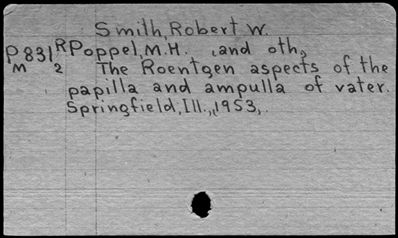 Smith, Robert W.
P831 R Poppel, M.H. , and oth,
M 2 The Roentgen aspects of the
papilla and ampulla of vater.
Springfield, Ill., 1953,.